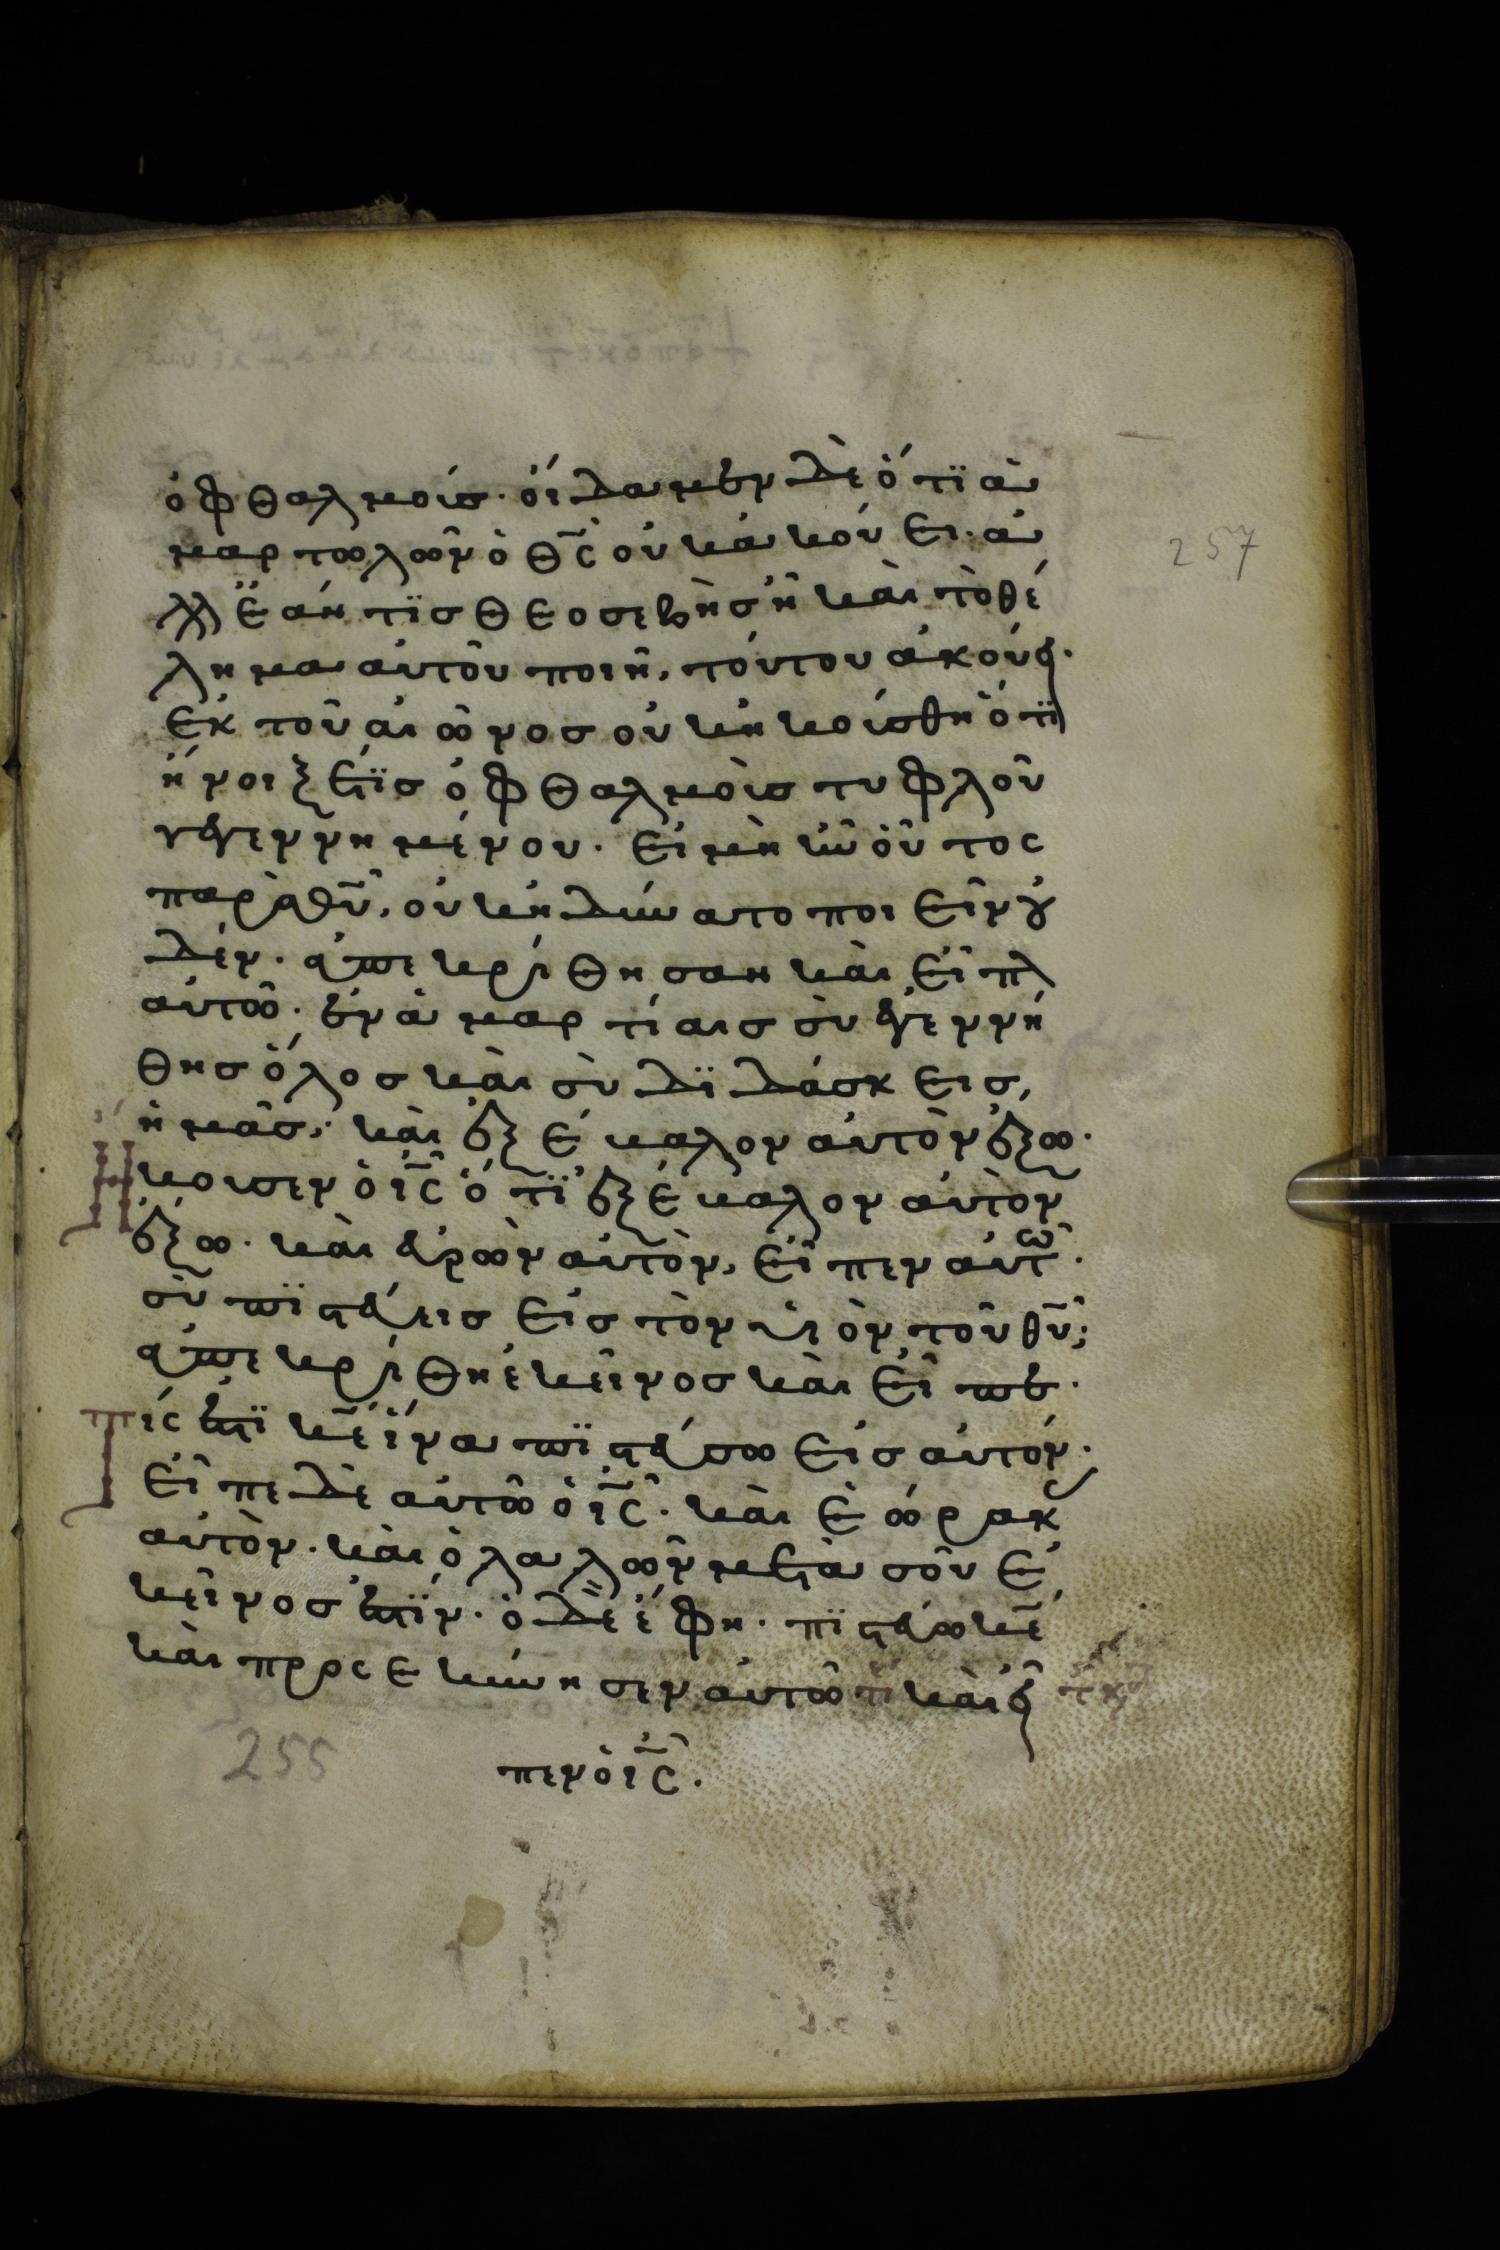 ὀφθαλμοίσ· οἵδαμεν δὲ ὅτϊ ἁ
μαρτωλῶν ὁ θ̅ς̅ οὐκ ἀκούει· ἀ
λλ' ἐάν τϊσ θεοσεβὴσ ἦ καὶ τὸ θέ
λημα αὐτοῦ ποιῆ, τούτου ἀκούει·
257
ἐκ τοῦ αἰῶνοσ οὐκ ἠκοίσθη ὅτϊ
ἤνοιξέ τϊσ ὀφθαλμοὺσ τυφλοῦ
γεγεννημένου· εἰ μὴ ἦν οὗτος
παρὰ θ̅υ̅, οὐκ ἠδύνατο ποιεῖν οὐ
δέν· ἀπεκρίθησαν καὶ εἶπον
αὐτῶ· ἐν ἁμαρτίαισ σὺ ἐγεννή
θησ ὅλοσ καὶ σὺ δϊδάσκεισ,
ἡμᾶσ; καὶ ἐξέβαλον αὐτὸν ἔξω·
Ἤκουσεν ὁ ι̅ς̅ ὅτϊ ἐξέβαλον αὐτὸν
ἔξω· καὶ εὑρὼν αὐτὸν, εἶπεν αὐτῶ·
σὺ πϊστεύεισ εἰσ τὸν υἱὸν τοῦ θ̅υ̅;
ἀπεκρίθη ἐκεῖνοσ καὶ εἶπεν·
Τίς ἐστϊ κ̅ε̅ ἵνα πϊστεύσω εἰσ αὐτόν·
εἶπε δὲ αὐτῶ ὁ ι̅ς̅· καὶ ἑώρακ
αὐτὸν· καὶ ὁ λαλῶν μετὰ σοῦ ἐ
κεῖνοσ ἐστϊν· ὁ δὲ ἔφη· πϊστεύω κ̅ε̅
καὶ προσεκύνησεν αὐτῶ καὶ εἶ
πεν ὁ ι̅ς̅·
255